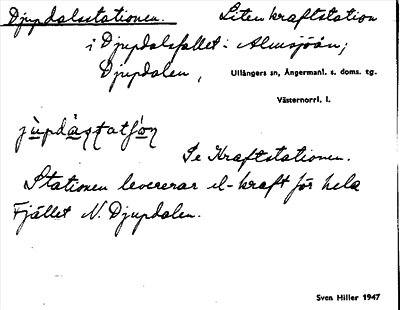 Djupdalsstationen. Liten kraftstation
i Djupdalsfallet i Almsjöån;
Djupdalen, Ullångers sn, Ångermanl. s. doms. tg.
Västernorrl. l.
Se Kraftstationen.
Stationen levererar el-kraft för hela
Fjället N. Djupdalen.
Sven Hiller 1947